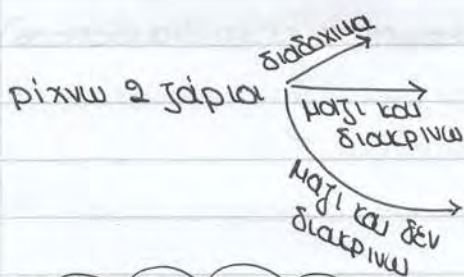 ρίχνω 2 ζάρια
διαδοχικα
μαζι και
διακρινω
μαζι και δεν
διακρινω